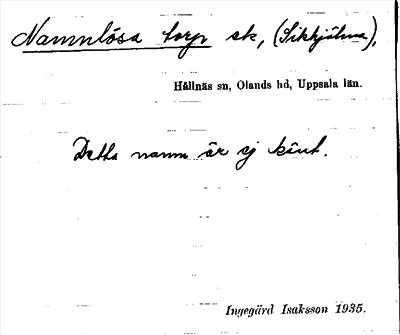 Namnlösa torp ek, (Sikhjälma),
Hållnäs sn, Olands hd, Uppsala län.
Detta namn är ej känt.
Ingegärd Isaksson 1935.